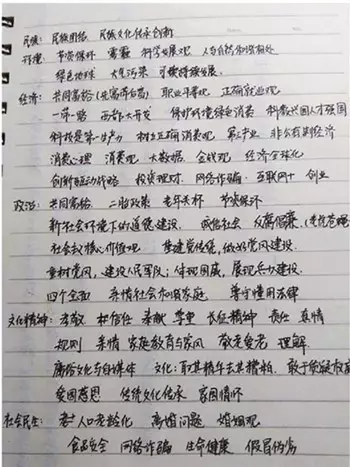 民族：民族团结 民族文化传承创新
环境：节资保环 雾霾 科学发展观 人与自然和谐相处
绿色地球 大气污染 可持续发展
经济：共同富裕（先富带后富） 职业生涯观 正确就业观
一带一路 西部大开发 保护环境绿色消费 科教兴国人才强国
科技是第一生产力 树立正确消费观 第三产业 非公有制经济
消费心理 消费观 大数据 金钱观 经济全球化
创新驱动战略 投资理财 网络诈骗 互联网+ 创业
政治：共同富裕 二胎政策 老年关怀 节资保环
新社会环境下的道德建设 诚信社会 反腐倡廉（老虎苍蝇
社会主义核心价值观 集建党伟业，做好党风建设
重树党风，建设人民军队；体现国威，展现兵力建设
四个全面 亲情社会和谐家庭 尊守懂用法律
文化精神：孝敬 和信任 奉献 学里 长征精神 责任 真情
规则 亲情 家庭教育与家风 敬老爱老 理解
廉价文化与自媒体 文化：取其精华去其糟粕 敢于质疑权威
爱国感恩 传统文化传承 家国情怀
社会民生：老人口老龄化 离婚问题 婚姻观
食品安全 网络诈骗 生命健康 假冒伪劣